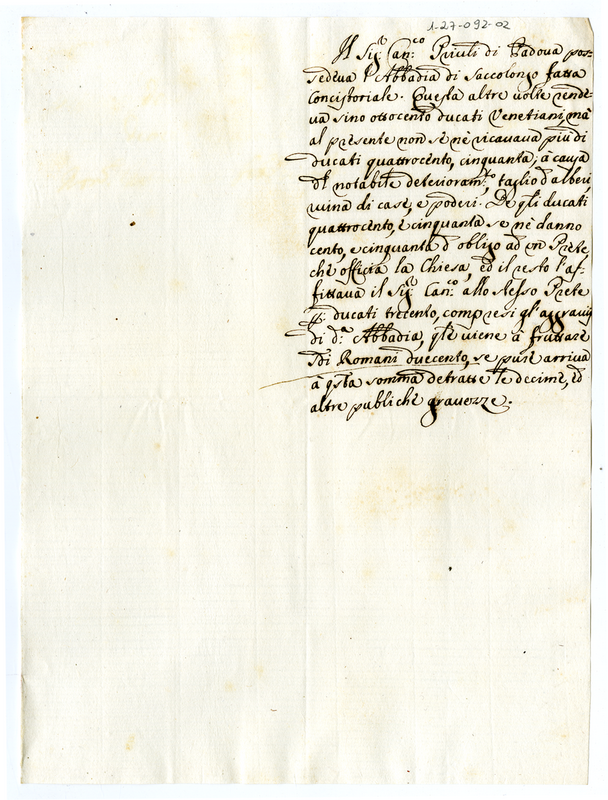 1-27-092-02
Il Sig.r Can.co Priuli di Padova pos=
sedeva l'Abbadia di Saccolongo fatta
Concistoriale. Questa altre volte rende=
va sino ottocento ducati Venetiani, mà
al presente non se nè ricavava più di
ducati quattrocento, cinquanta, à causa
del notabile deterioram.to, taglio d'alberi,
ruina di case, e poderi. De gli ducati
quattrocento, e cinquanta se nè danno
cento, e cinquanta d'obligo ad un Prete
che officia la Chiesa, ed il resto l'af=
fittava il Sig.r Can.co allo stesso Prete
p. ducati trecento, compresi gl'aggravij
di d.a Abbadia, q.le viene à fruttare
sdi Romani duecento, se pure arriva
à qsta somma detratte le decime, ed
altre publiche gravezze.